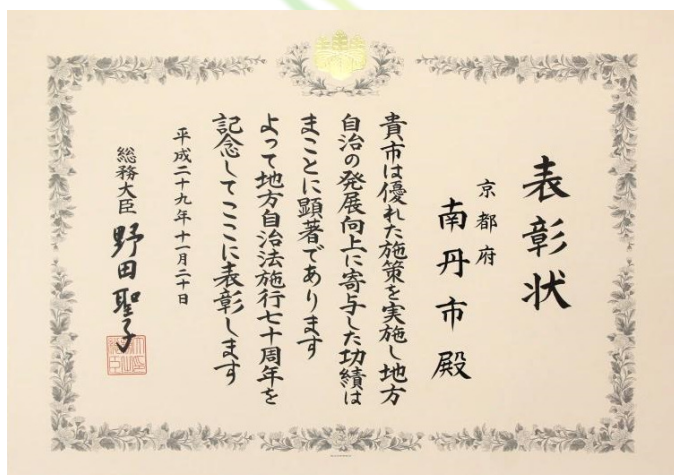 表彰状
京都府
南丹市殿
貴市は優れた施策を実施し地方
自治の発展向上に寄与した功績は
まことに顕著であります
よって地方自治法施行七十周年を
記念してここに表彰します
平成二十九年十一月二十日
総務大臣 野田聖子